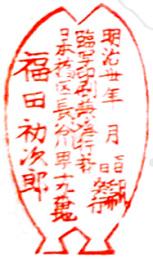 明治卅年 月 日印刷
日發行
臨写印刷兼発行者
日本橋区長谷川町十九番地
福田初次郎